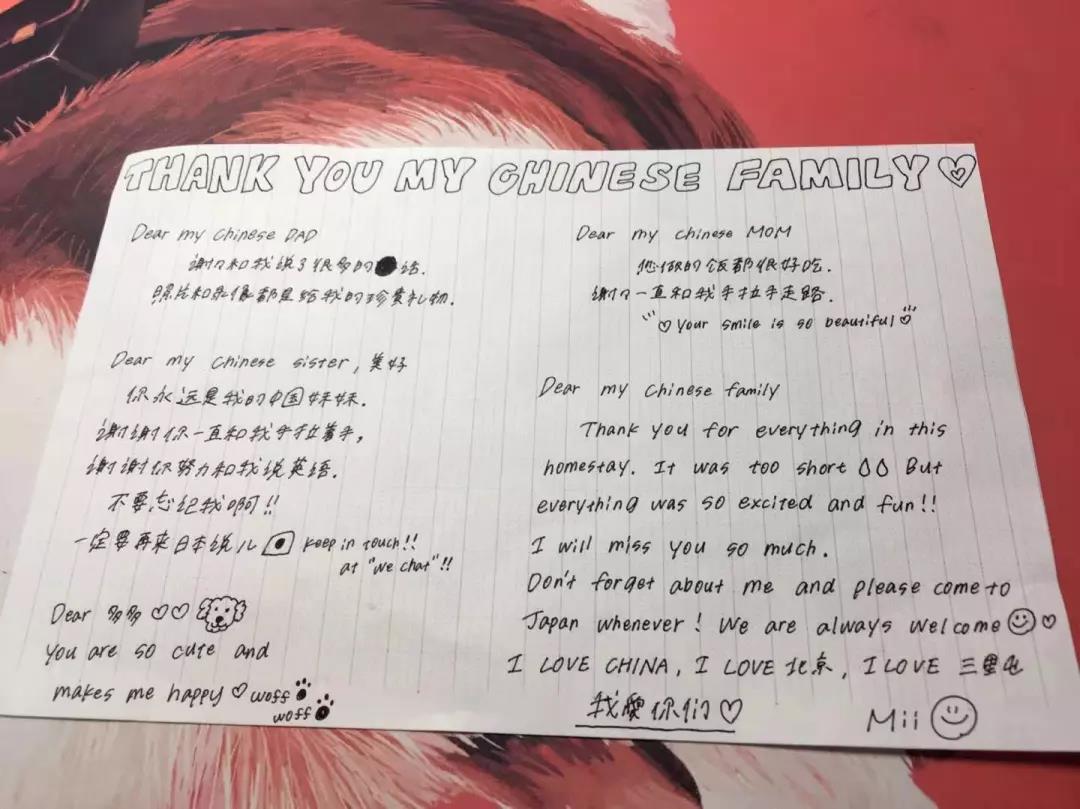 THANK YOU MY CHINESE FAMILY♡
Dear my Chinese DAD
谢々和我说了很多的话.
照片和录像都是给我的珍贵礼物.
Dear my Chinese sister, 美好
你永远是我的中国妹妹.
谢谢你一直和我手拉着手,
谢谢你努力和我说英语.
不要忘记我啊!!
一定要再来日本儿 keep in touch!!
at "we chat"!!
Dear 多多 ♡♡
You are so cute and
makes me happy ♡ woff
woff
Dear my Chinese MOM
您做的饭都很好吃.
谢々一直和我手拉手走路.
♡ Your smile is so beautiful ♡
Dear my Chinese family
Thank you for everything in this
homestay. It was too short But
everything was so excited and fun!!
I will miss you so much.
Don't forget about me and please come to
Japan whenever! We are always welcome ☺ ♡
I LOVE CHINA, I LOVE 北京, I LOVE 三里屯
我愛你们♡
Mii ☺